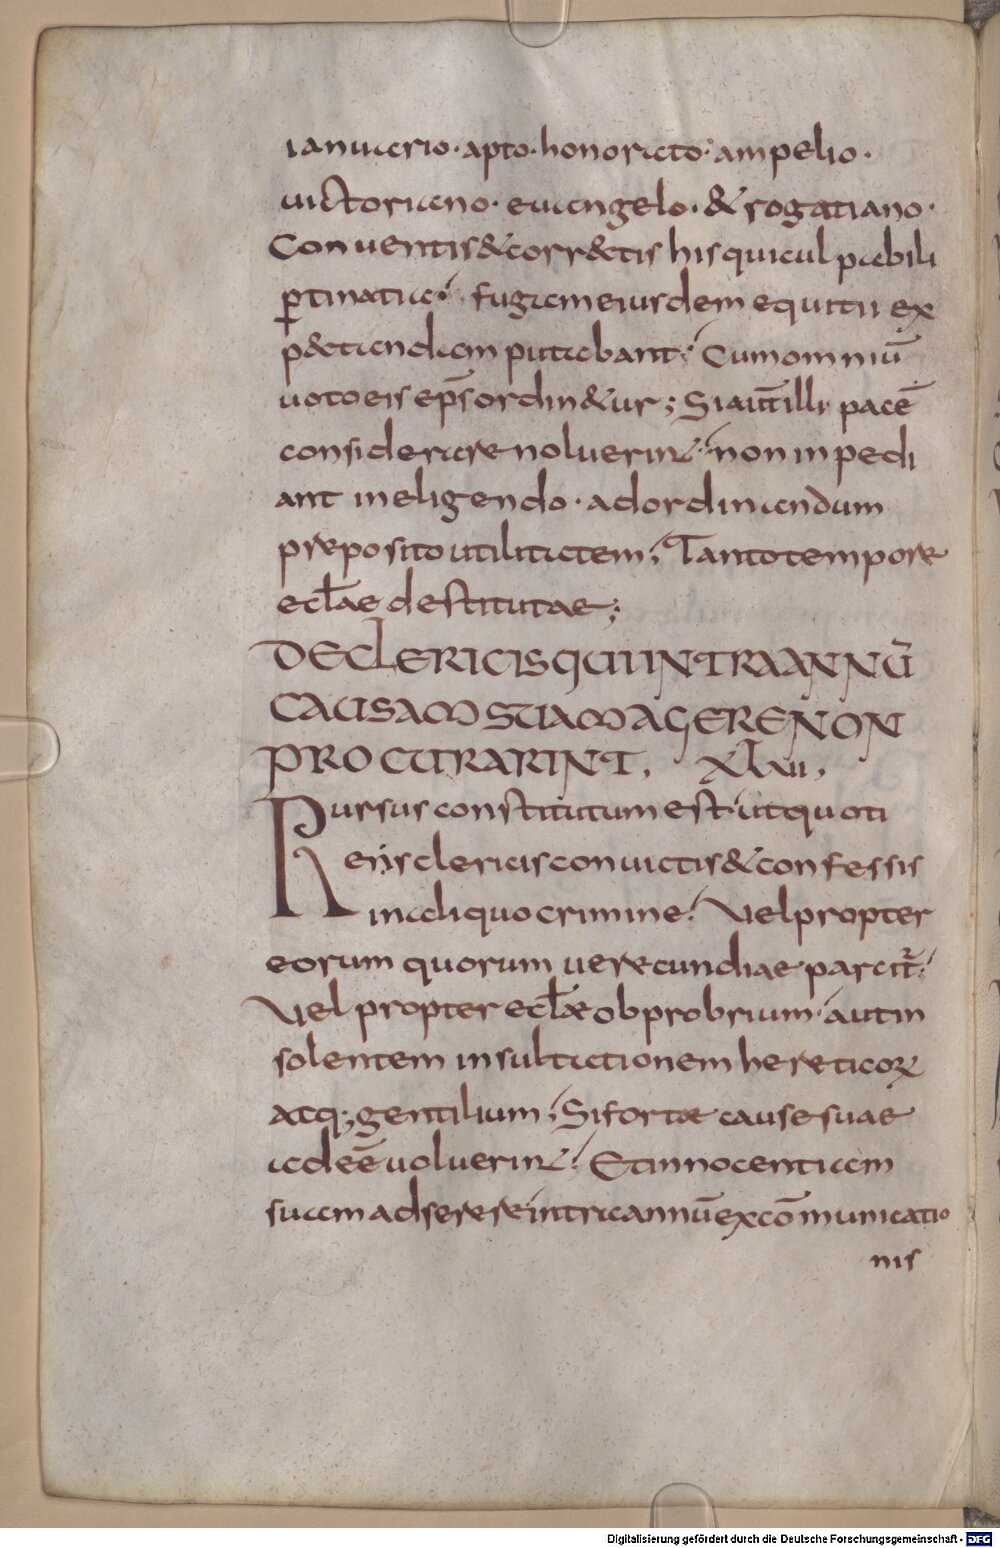 ianuario · apto · honorato · ampelio ·
uictoriano · euangelo · & rogatiano ·
Conuentis & corr&tis his qui culpabili
ꝑtinatia · fugam eiusdem equitii ex
p&tiendam putabant · Cum omniū
uoto eis ep̄s ordin&ur ; Si aut̄ illi pacē
considerare noluerint · non inpedi
ant in eligendo · ad ordinandum
preposito utilitatem ; Tanto tempore
eclae destitutae ;
DE CLERICIS QUI INTRA ANNŪ
CAUSAM SUAM AGERE NON
PROCURARINT . XLVII ,
Rursus constitutum est · ut quoti
ens clericis conuictis & confessis
in aliquo crimine · Vel propter
eorum quorum uerecundiae parcit̄ ·
Vel propter eclae obprobrium · aut in
solentem insultationem hereticoꝝ
atq; gentilium ; Si forte cause suae
adeē uoluerint · Et innocentiam
suam adserere intra annū excōmunicatio
nis
Digitalisierung gefördert durch die Deutsche Forschungsgemeinschaft - DFG